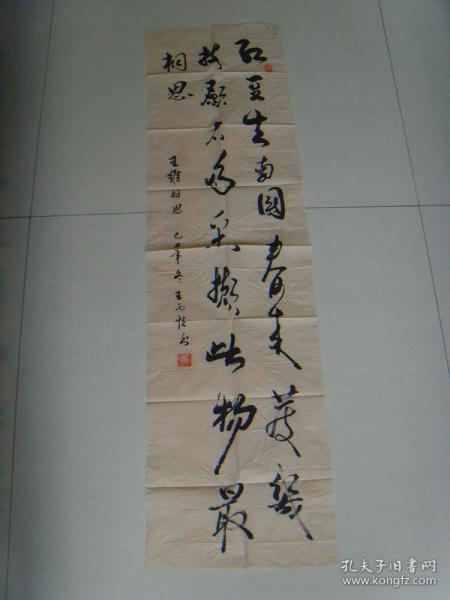 红豆生南國春来發幾
枝願君多采擷此物最
相思
王維相思 己丑年冬 王
孔夫子旧书网
www.kongfz.com